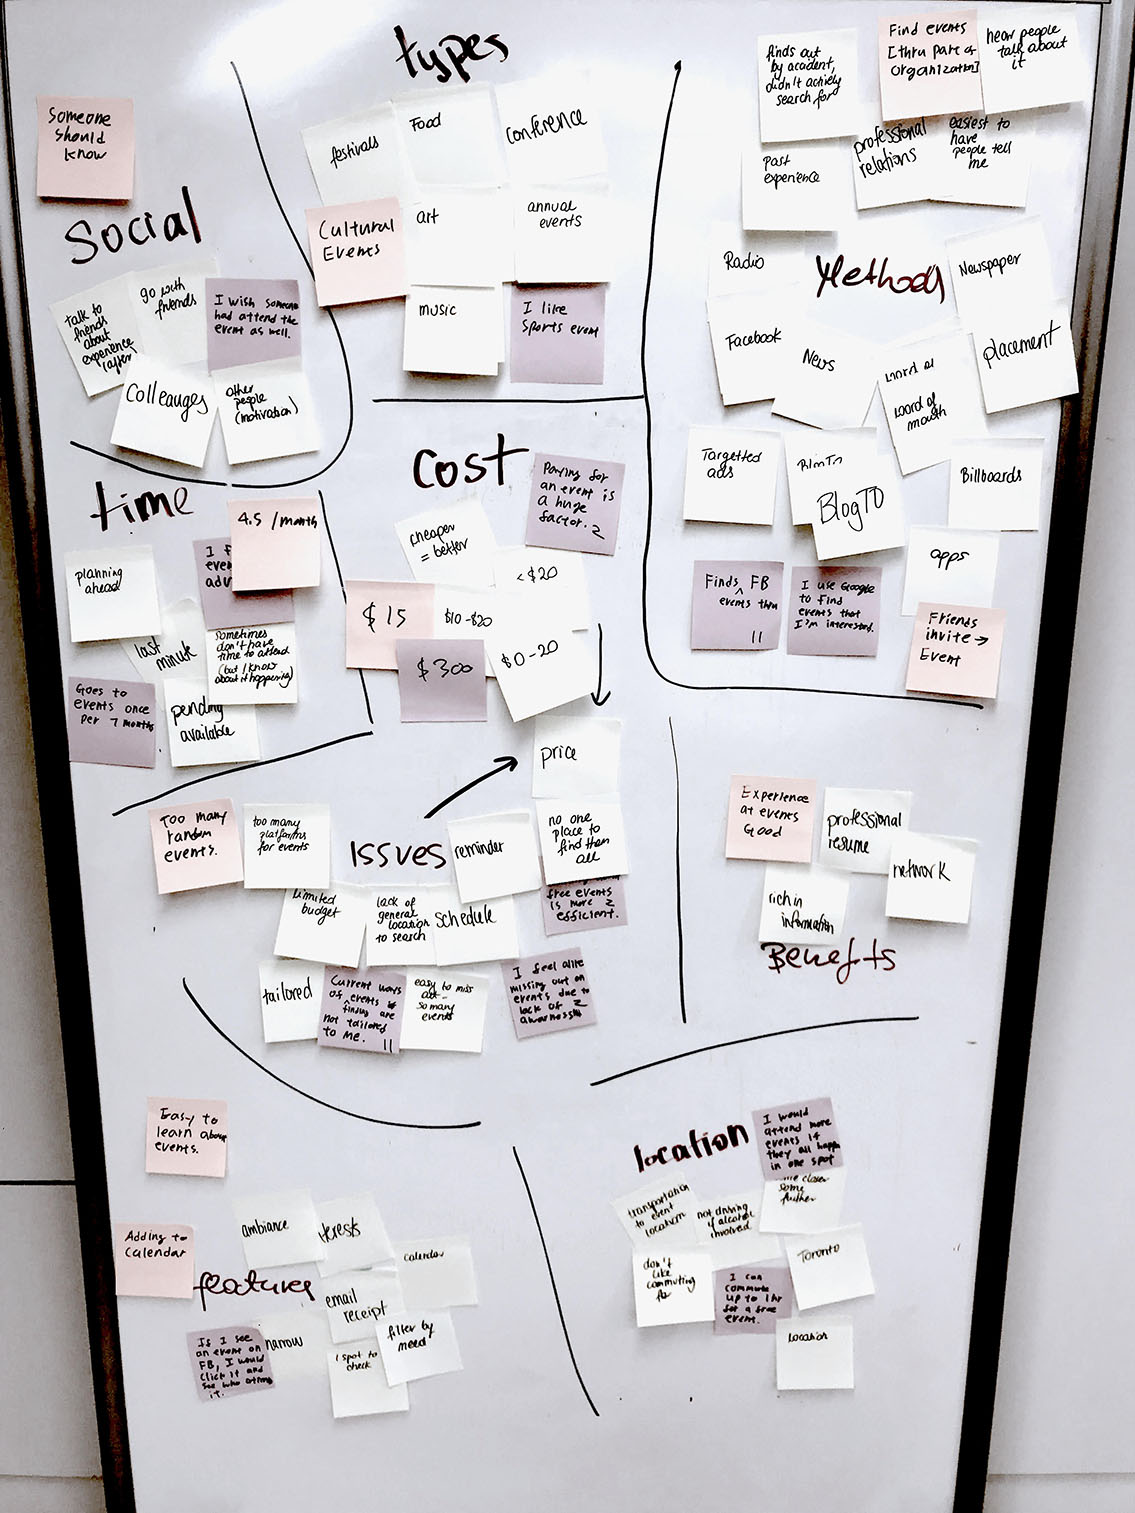 types
Someone
should
know
Social
talk to
friends
about
experience
(after)
go with
friends
I wish someone
had attend the
event as well.
Colleauges
other
people
(motivation)
festivals
Food
conference
Cultural
Events
art
annual
events
music
I like
Sports event
finds out
by accident,
didn't actively
search for
Find events
[thru part of
organization]
hear people
talk about
it
past
experience
professional
relations
easiest to
have
people tell
me
Methods
Radio
Newspaper
Facebook
News
word of
mouth
placement
Targetted
ads
BlogTO
Billboards
apps
Finds FB
events thru
I use Google
to find
events that
I'm interested.
Friends
invite →
Event
time
4.5 / month
planning
ahead
I
even
adv
last
minute
Sometimes
don't have
time to attend
(but I know
about it happening)
Goes to
events once
per 7 months
pending
available
Cost
Paying for
an event is
a huge
factor. 2
cheaper
= better
<$20
$15
$10-$20
$300
$0-20
Issues
price
Too many
random
events.
too many
platforms
for events
reminder
no one
place to
find them
all
limited
budget
lack of
general
location
to search
schedule
free events
is more 2
efficient.
tailored
Current ways
of events
finding are
not tailored
to me.
easy to miss
out -
so many
events
I feel alike
missing out on
events due to
lack of 2
awareness
Experience
at events
Good
professional
resume
network
rich in
information
Benefits
Easy to
learn about
events.
Adding to
Calendar
features
ambiance
terests
calendar
email
receipt
filter by
need
narrow
1 spot to
check
If I see
an event on
FB, I would
click it and
see who
it.
location
I would
attend more
events if
they all happen
in one spot
transportation
to event
location
not driving
if alcohol
involved
closer
some
further
don't
like
commuting
far
I can
commute
up to 1hr
for a free
event.
Toronto
Location